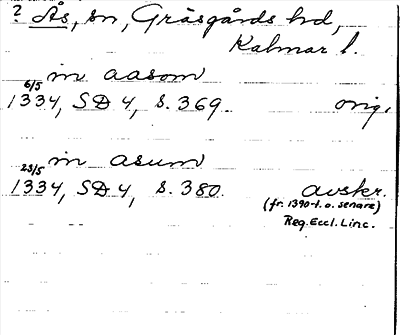 ? Ås, sn, Gräsgårds hd,
Kalmar l.
in aasom
6/5
1334, SD 4, s. 369. orig.
in asum
23/5
1334, SD 4, s. 380. avskr.
(fr. 1390-t. o. senare)
Reg. Eccl. Linc.